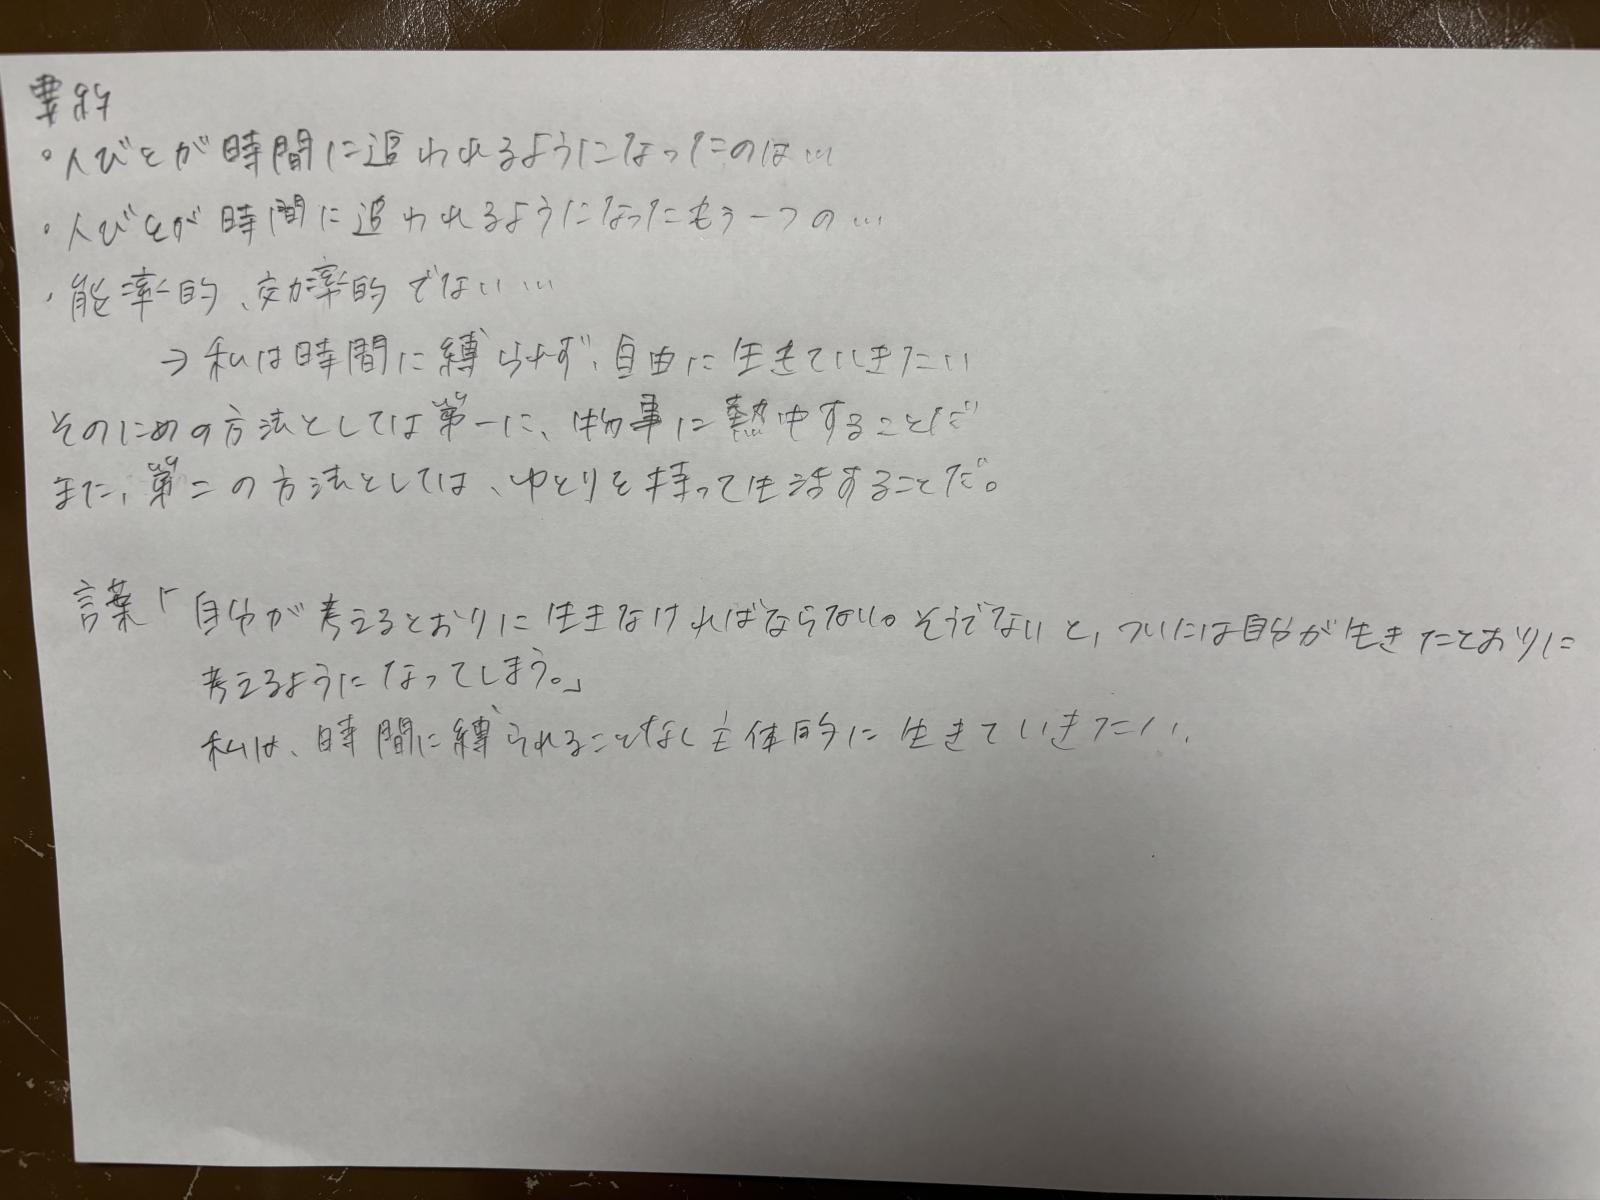 要約
・人びとが時間に追われるようになったのは…
・人びとが時間に追われるようになったもう一つの…
・能率的、効率的でない…
→私は時間に縛らせず、自由に生きていきたい
そのための方法としては第一に、物事に熱中することだ
また、第二の方法としては、ゆとりを持って生活することだ。
言葉「自分が考えるとおりに生きなければならない。そうでないと、ついには自分が生きたとおりに
考えるようになってしまう。」
私は、時間に縛られることなく主体的に生きていきたい。